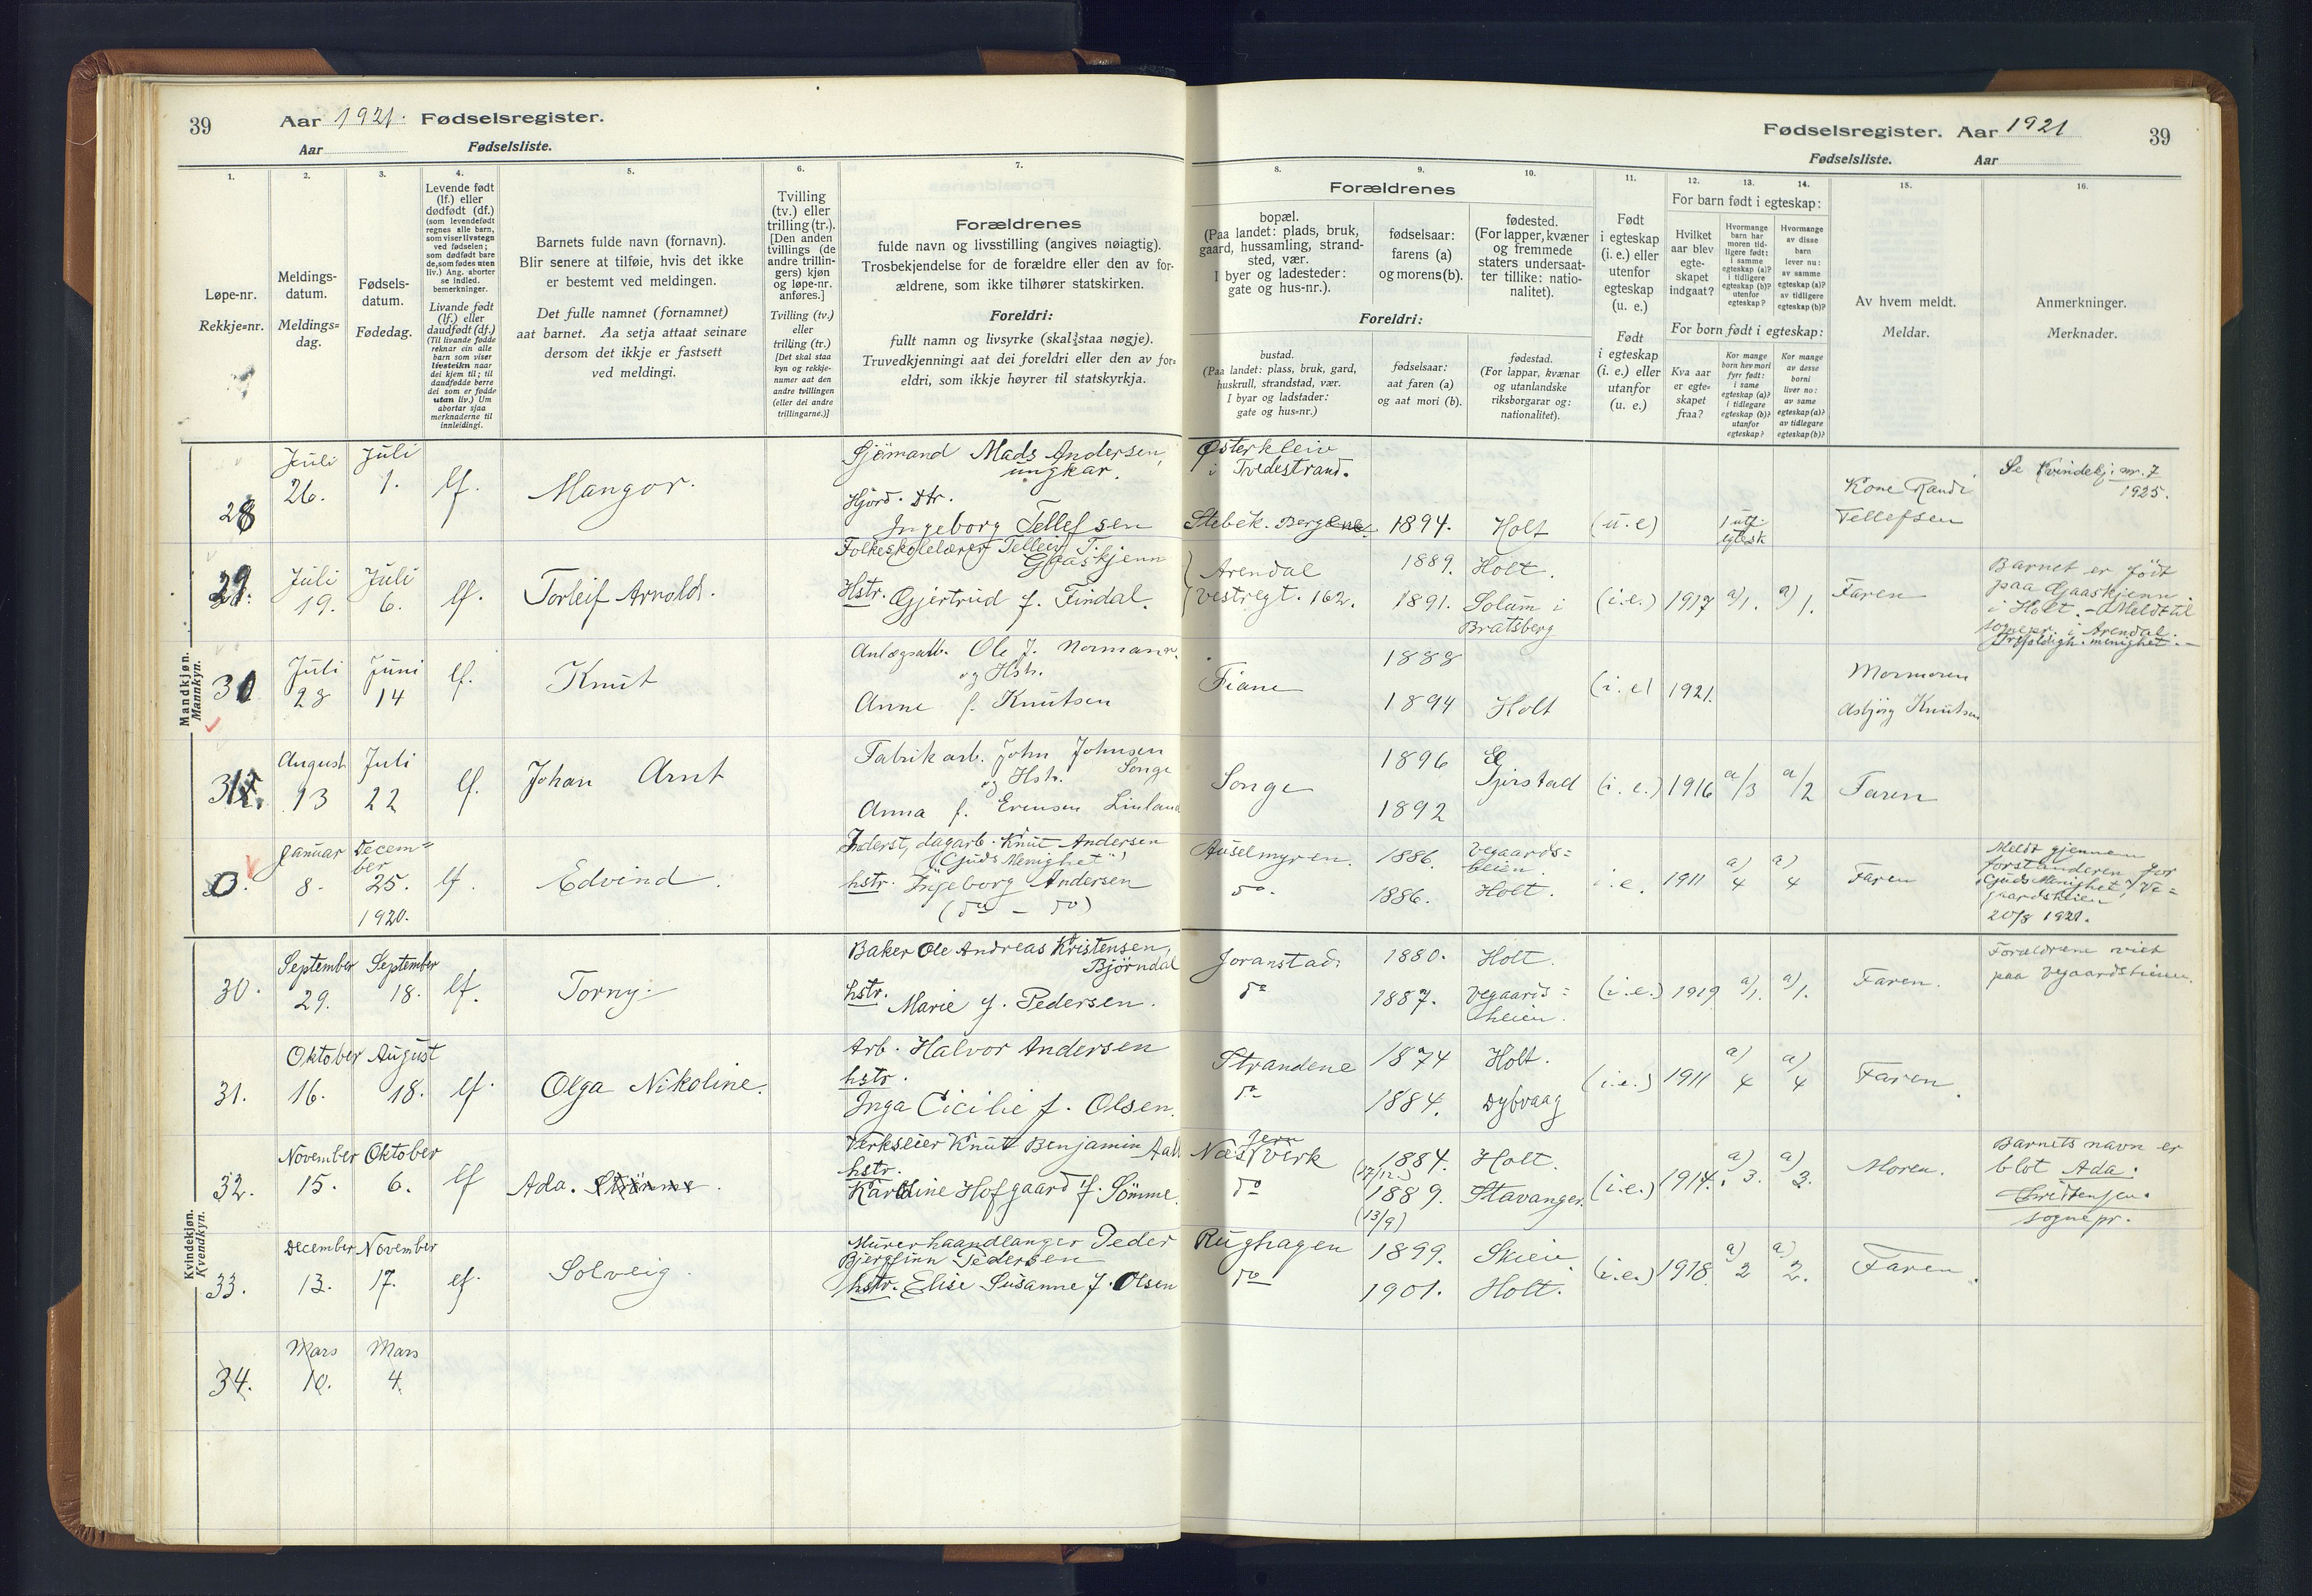 39
Aar 1921. Fødselsregister.
Aar Fødselsliste.
1.
Løpe-nr.
Rekkje=nr.
2.
Meldings-
datum.
Meldings=
dag.
3.
Fødsels-
datum.
Fødedag.
4.
Levende født
(lf.) eller
dødfødt (df.)
(som levendefødt
regnes alle barn,
som viser livstegn
ved fødselen;
som dødfødt bare
de, som fødes uten
liv.) Ang. aborter
se indled.
bemerkninger.
Livande født
(lf.) eller
daudfødt (df.)
(Til livande fødde
reknar ein alle
barn som viser
livsteikn naar
dei kjem til; til
daudfødde berre
dei som er fødde
utan liv.) Um
abortar sjaa
merknaderne til
innleidingi.
5.
Barnets fulde navn (fornavn).
Blir senere at tilføie, hvis det ikke
er bestemt ved meldingen.
Det fulle namnet (fornamnet)
aat barnet. Aa setja attaat seinare
dersom det ikkje er fastsett
ved meldingi.
6.
Tvilling
(tv.) eller
trilling (tr.).
[Den anden
tvillings (de
andre trillin-
gers) kjøn
og løpe-nr.
anføres.]
Tvilling (tv.)
eller
trilling (tr.)
[Det skal staa
kyn og rekkje-
numer aat den
andre tvillingen
(eller dei andre
trillingarne.)]
7.
Forældrenes
fulde navn og livsstilling (angives nøiagtig).
Trosbekjendelse for de forældre eller den av for-
ældrene, som ikke tilhører statskirken.
Foreldri:
fullt namn og livsyrke (skal staa nøgje).
Truvedkjenningi aat dei foreldri eller den av for=
eldri, som ikkje høyrer til statskyrkja.
Fødselsregister. Aar 1921
39
Fødselsliste. Aar
Forældrenes
8.
bopæl.
(Paa landet: plads, bruk,
gaard, hussamling, strand-
sted, vær.
I byer og ladesteder:
gate og hus-nr.).
9.
fødselsaar:
farens (a)
og morens (b).
10.
fødested.
(For lapper, kvæner
og fremmede
staters undersaat-
ter tillike: natio-
nalitet).
Foreldri:
bustad.
(Paa landet: plass, bruk, gard,
huskrull, strandstad, vær.
I byar og ladstader:
gate og hus=nr.)
fødselsaar:
aat faren (a)
og aat mori (b).
fødestad.
(For lappar, kvænar
og utanlandske
riksborgarar og:
nationalitet).
11.
Født
i egteskap
(i. e.) eller
utenfor
egteskap
(u. e.)
Født
i egteskap
(i. e.) eller
utanfor
(u. e.)
12. 13. 14.
For barn født i egteskap:
Hvilket
aar blev
egte-
skapet
indgaat?
Hvormange
barn har
moren tid-
ligere født:
i samme
egteskap (a)?
i tidligere
egteskap (b)?
utenfor
egteskap?
Hvormange
av disse
barn
lever nu:
av samme
egteskap (a)?
av tidligere
egteskap (b)?
For born født i egteskap:
Kva aar
er egte=
skapet
fraa?
Kor mange
born hev mori
fyrr født:
i same
egteskap (a)?
i tidlegare
egteskap (b)?
utanfor
egteskap?
Kor mange
av desse
borni
liver no:
av same
egteskap (a)?
av tidlegare
egteskap (b)?
15.
Av hvem meldt.
Meldar.
16.
Anmerkninger.
Merknader.
Mandkjøn.
Mannkyn.
28 Juli 26. Juli 1. lf. Mangor.
Sjömand Mads Andersen,
ungkar.
Hjörd. Dtr.
Ingeborg Tellefsen
Østerkleiv
i Tvedestrand.
Stebek. 1894. Holt (u. e) 1 utf. egtesk
Kone Randi
Tellefsen
Se Kvindekj. nr. 7
1925.
29. Juli 19. Juli 6. lf. Torleif Arnold.
Folkeskolelærer Telleif T.
Gjaaskjenn
Hstr. Gjertrud f. Tindal.
Arendal 1889. Holt.
Vestregt. 162. 1891. Solum i
Bratsberg
(i.e.) 1917 a/1. a) 1. Faren
Barnet er født
paa Gjaaskjenn
i Holt. - Meldt til
sognepr. i Arendal.
Trefoldigh. menighet. -
30 Juli 28 Juni 14 lf. Knut
Anlægsarb. Ole J. Normann.
og Hstr.
Anne f. Knutsen
Fiane 1888
1894 Holt (i. e) 1921.
Mormoren
Asbjörg Knutsen
31. August 13 Juli 22 lf. Johan Arnt
Fabrikarb. John Johnsen
Songe
og Hstr.
Anna f. Evensen Linland
Songe 1896 Gjerstad
1892
(i. e.) 1916 a/3 a/2 Faren
0. Januar 8. December 25. 1920. lf. Edvind.
Inderst, dagarb. Knut Andersen
("Guds Menighet")
hstr. Ingeborg Andersen
(do - do)
Auselmyren. 1886. Vegaards=
heien.
do. 1886. Holt.
i. e. 1911 a) 4 a) 4 Faren
Meldt gjennem
forstanderen for
"Guds Menighet", Ve=
gaardsheien
20/8 1921.
Kvindekjøn.
Kvendkyn.
30. September 29. September 18. lf. Torny.
Baker Ole Andreas Kristensen
Björndal
hstr. Marie f. Pedersen.
Joranstad. 1880. Holt.
do 1887. Vegaards=
heien.
(i. e.) 1919 a/1. a/1. Faren.
Forældrene viet
paa Vegaardsheien.
31. Oktober 16. August 18. lf. Olga Nikoline.
Arb. Halvor Andersen
hstr.
Inga Cicilie f. Olsen.
Strandene 1874 Holt.
do 1884. Dybvaag
(i.e.) 1911 a) 4 a) 4 Faren.
32. November 15. Oktober 6. lf Ada.
Verkseier Knut Benjamin Aall
hstr.
Karoline Hofgaard f. Sömme.
Næs Jernverk 1884. Holt.
(27/12)
do 1889. Stavanger.
(13/9)
(i.e.) 1914. a) 3. a) 3. Moren.
Barnets navn er
blot Ada.
Christensen.
sognepr.
33. December 13. November 17. lf. Solveig.
Murerhaandlanger Peder
Bjergfinn Pedersen
hstr. Elise Susanne f. Olsen
Rughagen 1899. Skien.
do 1901. Holt.
(i.e.) 1918 a) 2 a) 2. Faren.
34. Mars 10. Mars 4.